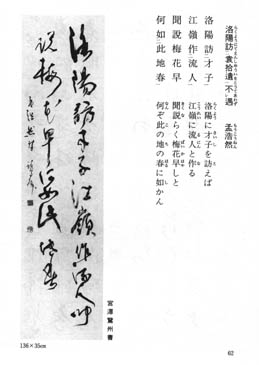 洛陽訪袁拾遺不遇
孟浩然
洛陽訪才子
江嶺作流人
聞説梅花早
何如此地春
洛陽に才子を訪えば
江嶺に流人と作る
聞説らく梅花早しと
何ぞ此の地の春に如かん
洛陽訪才子江嶺作流人聞
説梅花早何如此地春
宮澤鵞州書
136×35cm
62